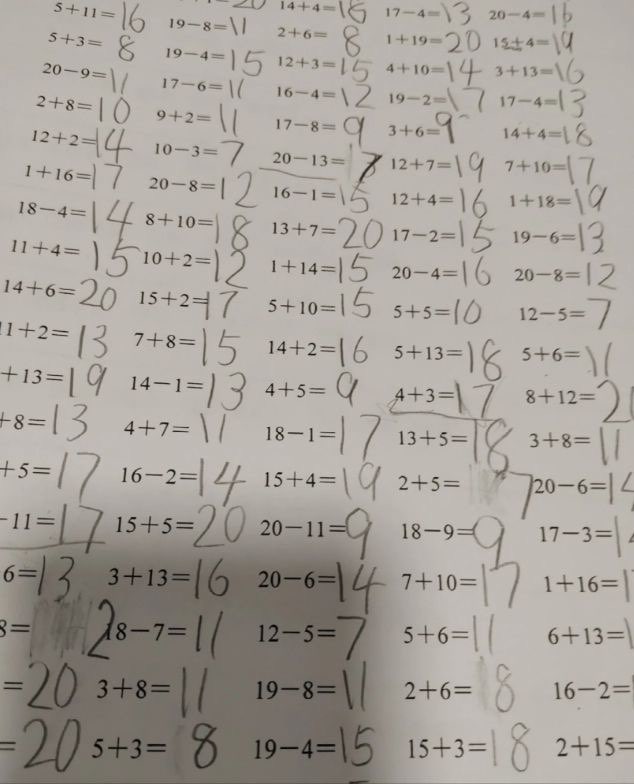 14+4=18 17−4=13 20−4=16
5+11=16 19−8=11 2+6=8 1+19=20 15±4=19
5+3=8 19−4=15 12+3=15 4+10=14 3+13=16
20−9=11 17−6=11 16−4=12 19−2=17 17−4=13
2+8=10 9+2=11 17−8=9 3+6=9 14+4=18
12+2=14 10−3=7 20−13=7 12+7=19 7+10=17
1+16=17 20−8=12 16−1=15 12+4=16 1+18=19
18−4=14 8+10=18 13+7=20 17−2=15 19−6=13
11+4=15 10+2=12 1+14=15 20−4=16 20−8=12
14+6=20 15+2=17 5+10=15 5+5=10 12−5=7
11+2=13 7+8=15 14+2=16 5+13=18 5+6=11
+13=19 14−1=13 4+5=9 4+3=17 8+12=2
+8=13 4+7=11 18−1=17 13+5=18 3+8=11
+5=17 16−2=14 15+4=19 2+5=7 20−6=14
−11=17 15+5=20 20−11=9 18−9=9 17−3=1
6=13 3+13=16 20−6=14 7+10=17 1+16=1
8=12 18−7=11 12−5=7 5+6=11 6+13=1
=20 3+8=11 19−8=11 2+6=8 16−2=
=20 5+3=8 19−4=15 15+3=18 2+15=